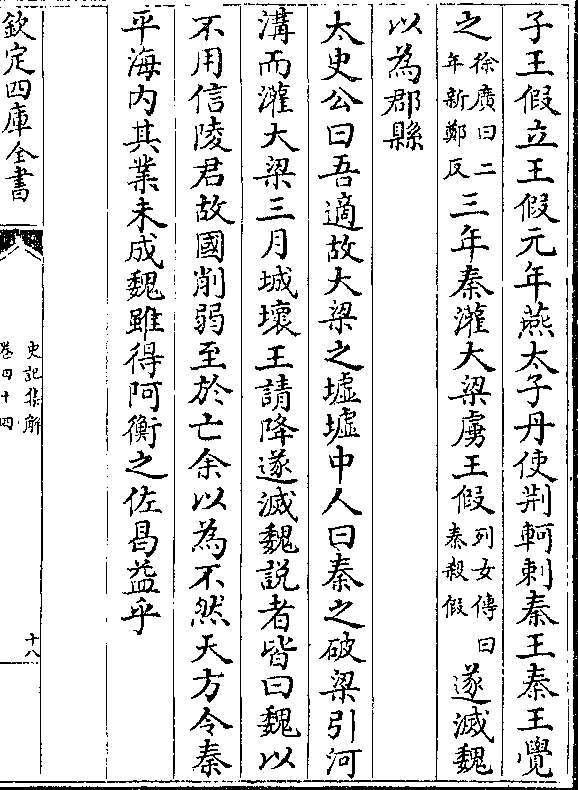 子王假立王假元年燕太子丹使荆軻刺秦王秦王覺
之徐廣曰二年新鄭反三年秦灌大梁虜王假列女傳曰秦殺假遂滅魏
以為郡縣
太史公曰吾適故大梁之墟墟中人曰秦之破梁引河
溝而灌大梁三月城壞王請降遂滅魏說者皆曰魏以
不用信陵君故國削弱至於亡余以為不然天方令秦
平海内其業未成魏雖得阿衡之佐曷益乎
欽定四庫全書
史記集解
卷四十四
十八